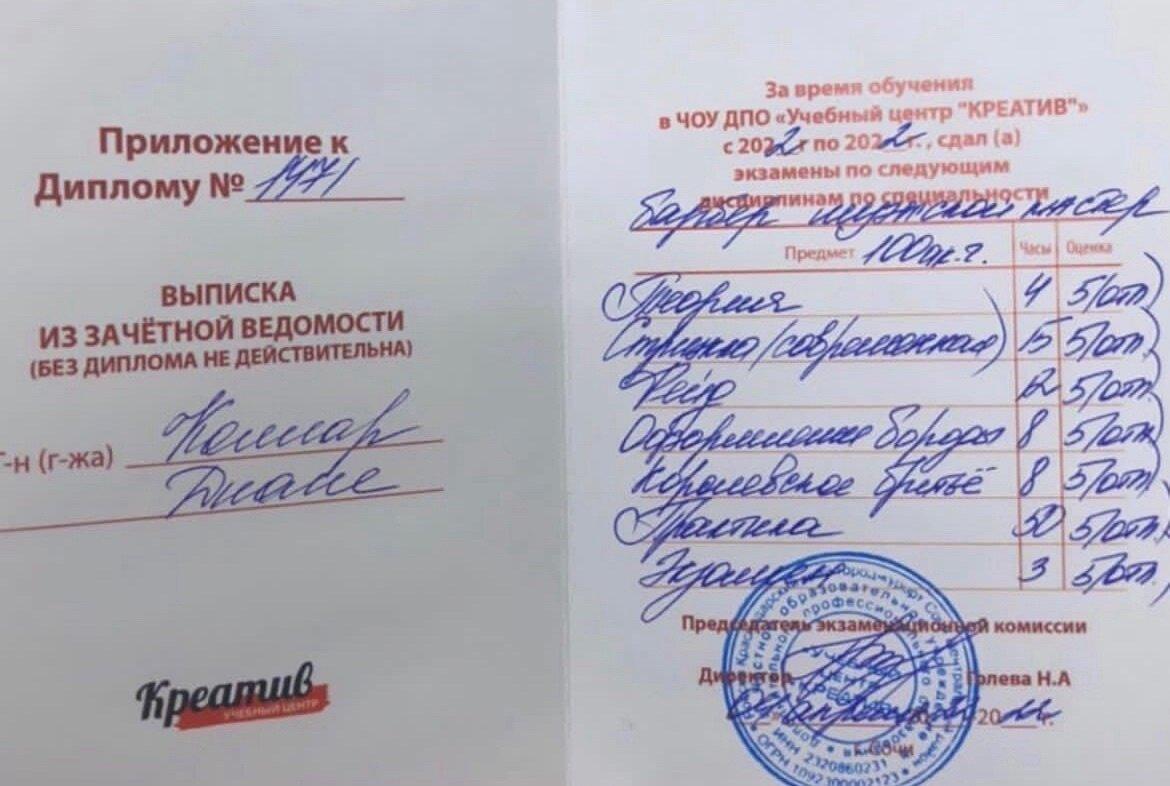 Приложение к
Диплому № 1471
ВЫПИСКА
ИЗ ЗАЧЁТНОЙ ВЕДОМОСТИ
(БЕЗ ДИПЛОМА НЕ ДЕЙСТВИТЕЛЬНА)
Г-н (г-жа) Коммар
Диане
Креатив
УЧЕБНЫЙ ЦЕНТР
За время обучения
в ЧОУ ДПО «Учебный центр "КРЕАТИВ"»
с 2022 г по 2022 г. , сдал (а)
экзамены по следующим
дисциплинам по специальности
барбер мужской мастер
Предмет 100 ак. ч. Часы Оценка
Теория 4 5/отл)
Стрижка (современная) 15 5/отл.
Фейд 12 5/отл.
Оформление бороды 8 5/отл.
Королевское бритьё 8 5/отл)
Практика 50 5/отл.
Экзамен 3 5/отл.
Председатель экзаменационной комиссии
Директор Голева Н.А
апреля 2022 г.
г. Сочи
УЧЕБНЫЙ ЦЕНТР КРЕАТИВ
ИНН 2320860231
ОГРН 1092300002123